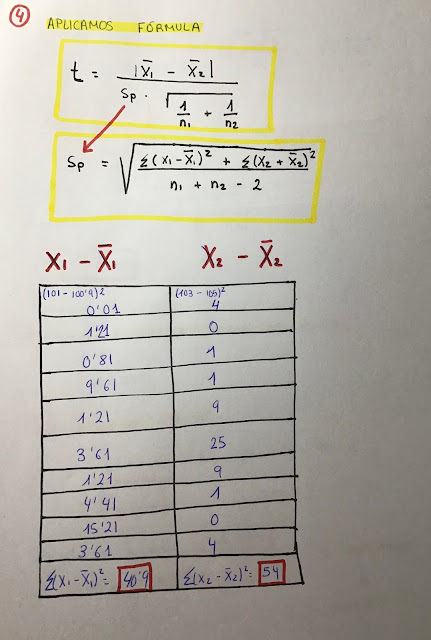 4 APLICAMOS FÓRMULA
t = |X̄1 - X̄2| / Sp · √(1/n1 + 1/n2)
Sp = √((Σ(x1-X̄1)² + Σ(X2 + X̄2)²) / (n1 + n2 - 2))
X1 - X̄1 X2 - X̄2
(101 - 100'9)² (103 - 105)²
0'01 4
1'21 0
0'81 1
9'61 1
1'21 9
3'61 25
1'21 9
4'41 1
15'21 0
3'61 4
Σ(x1-X̄1)² = 40'9 Σ(x2-X̄2)² = 54